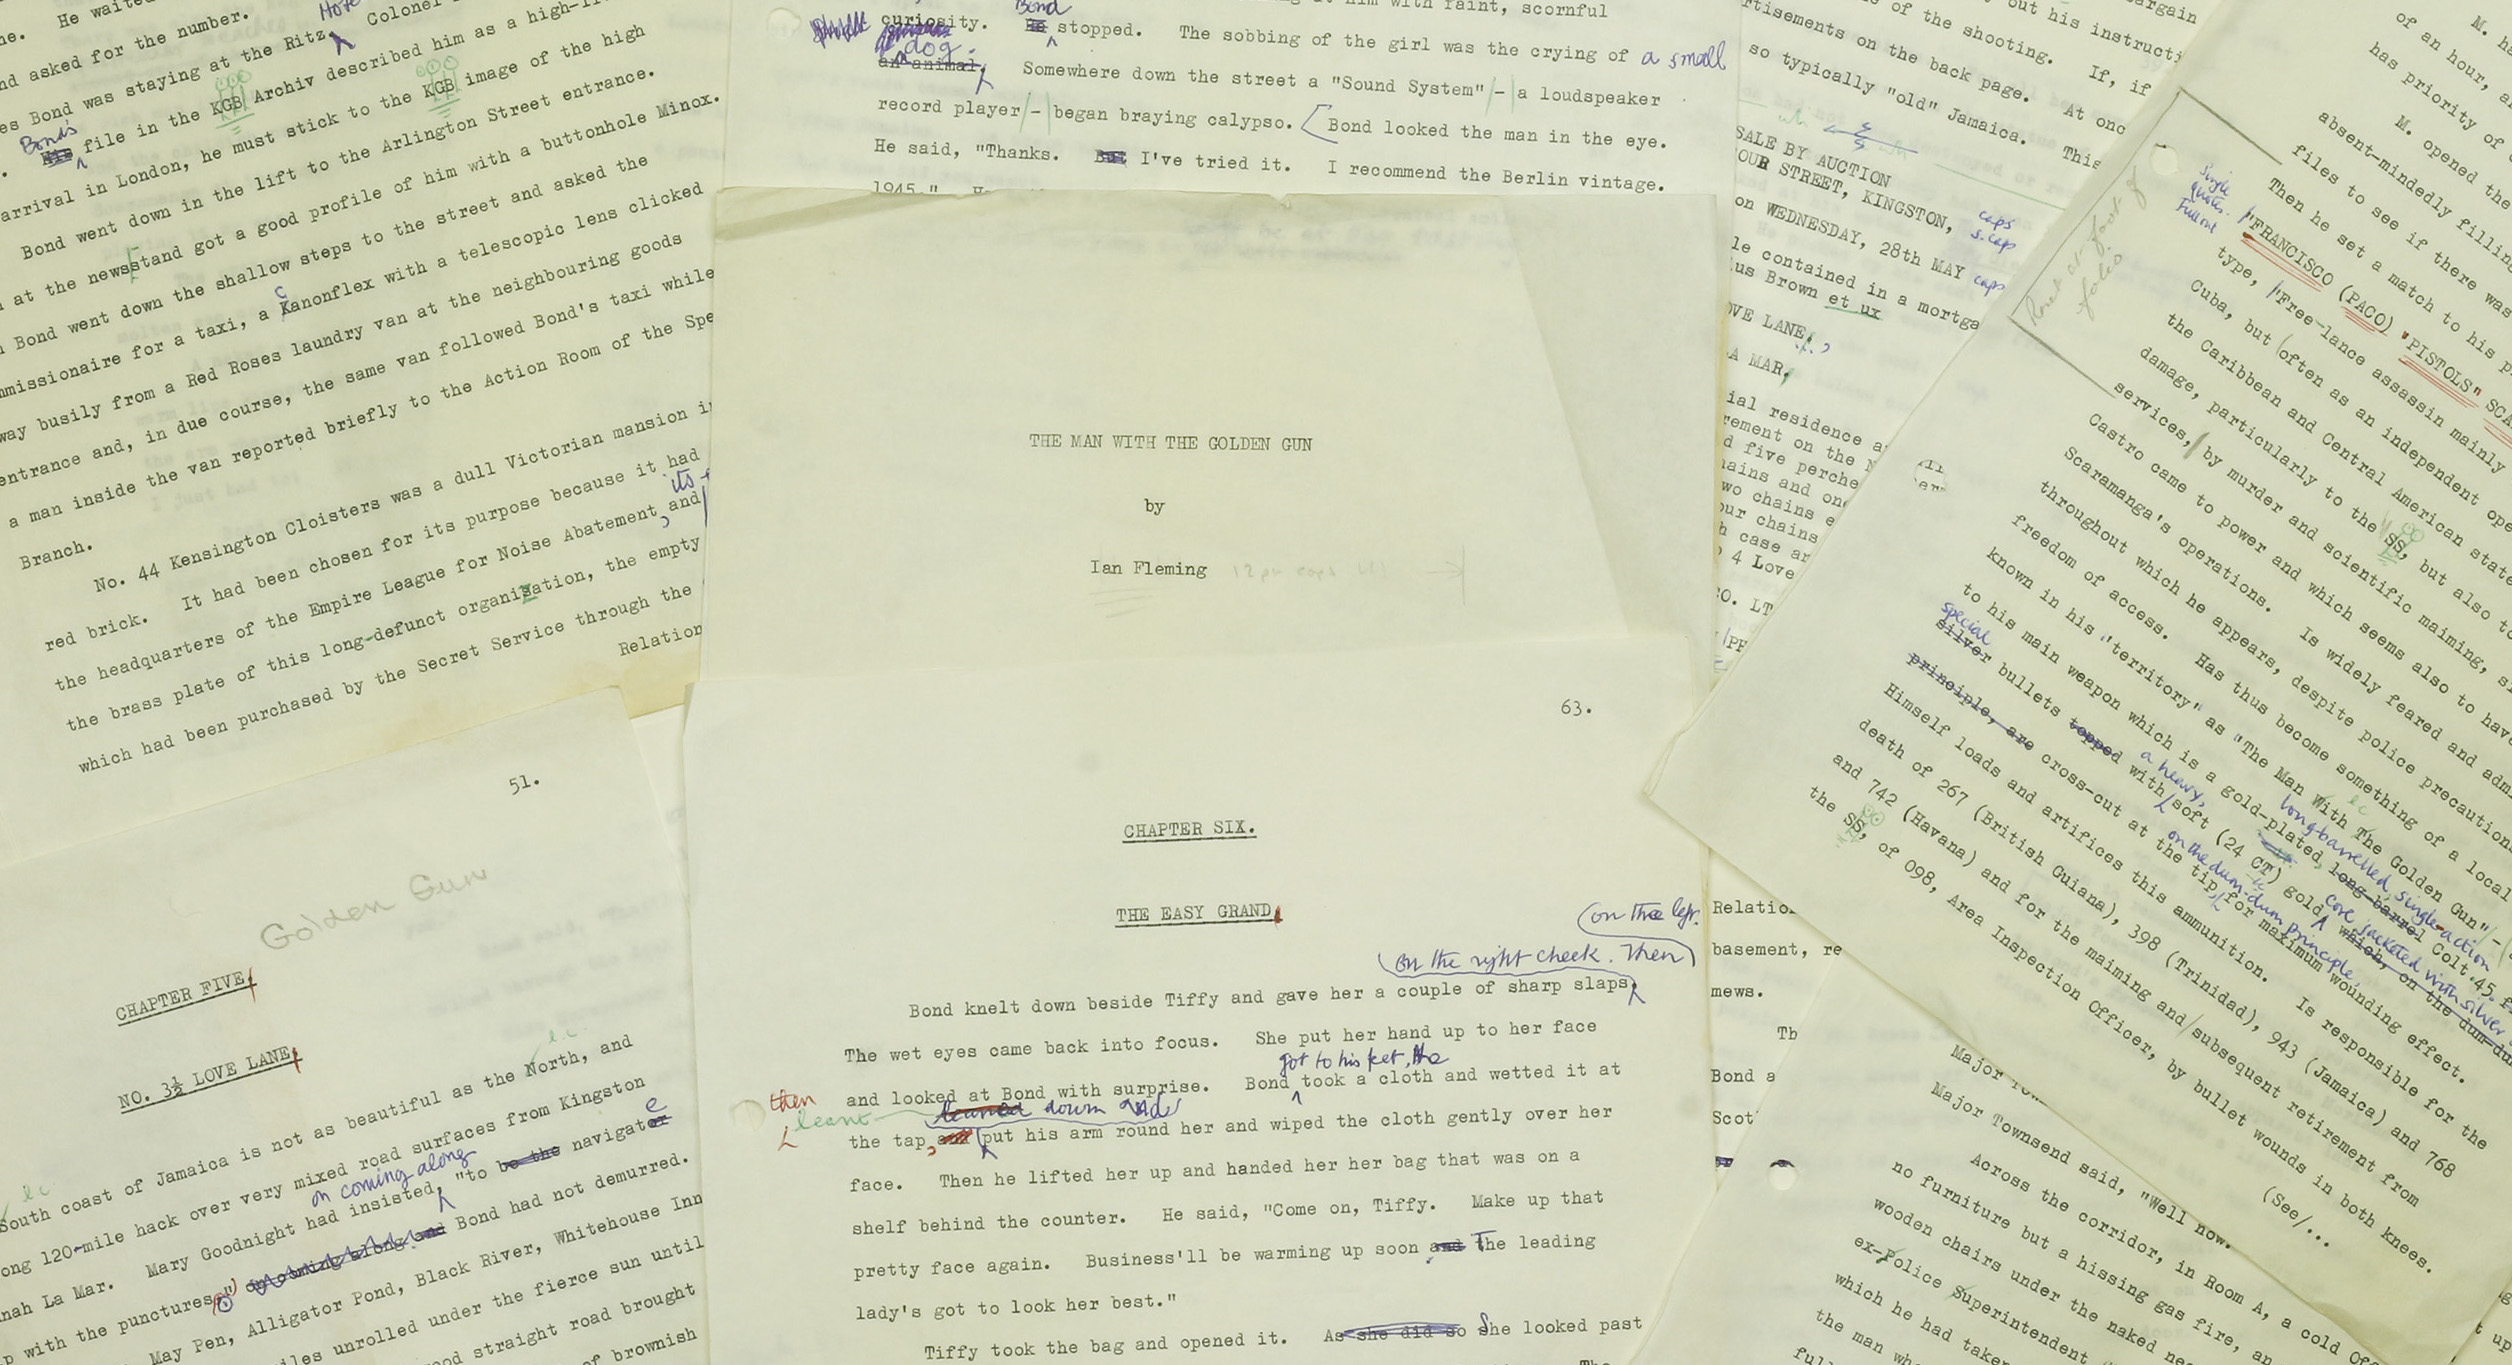 He waited
and asked for the number.
es Bond was staying at the Ritz Hote Colonel
Bond's His file in the KGB Archiv described him as a high-
arrival in London, he must stick to the KGB image of the high
Bond went down in the lift to the Arlington Street entrance.
at the newsstand got a good profile of him with a buttonhole Minox.
Bond went down the shallow steps to the street and asked the
mmissionaire for a taxi, a c Kanonflex with a telescopic lens clicked
way busily from a Red Roses laundry van at the neighbouring goods
entrance and, in due course, the same van followed Bond's taxi while
a man inside the van reported briefly to the Action Room of the Spe
Branch.
No. 44 Kensington Cloisters was a dull Victorian mansion in
red brick. It had been chosen for its purpose because it had
its
the headquarters of the Empire League for Noise Abatement, and
the brass plate of this long-defunct organization, the empty
which had been purchased by the Secret Service through the
Relation
at him with faint, scornful
curiosity. Bond He stopped. The sobbing of the girl was the crying of a small
dog. an animal. Somewhere down the street a "Sound System" - a loudspeaker
record player - began braying calypso. Bond looked the man in the eye.
He said, "Thanks. But I've tried it. I recommend the Berlin vintage.
1945."
THE MAN WITH THE GOLDEN GUN
by
Ian Fleming
out his instructi
of the shooting. If, if
rtisements on the back page. At onc
so typically "old" Jamaica. This
SALE BY AUCTION
OUR STREET, KINGSTON, caps s.cap
on WEDNESDAY, 28th MAY caps
le contained in a mortga
us Brown et ux
OVE LANE,
A MAR.
ial residence a
rement on the N
d five perche
hains and one
wo chains e
our chains
h case ar
4 Love
O. LT
M. ha
of an hour, a
has priority of
M. opened the
absent-mindedly filling
files to see if there was
Then he set a match to his p
Single quotes. Full out
Runet at foot of folio
"FRANCISCO (PACO) "PISTOLS" SCA
type, "Free-lance assassin mainly
Cuba, but often as an independent ope
the Caribbean and Central American state
damage, particularly to the SS, but also to
services, by murder and scientific maiming, si
Castro came to power and which seems also to have
Scaramanga's operations. Is widely feared and adm
throughout which he appears, despite police precautions
freedom of access. Has thus become something of a local
known in his "territory" as "The Man With The Golden Gun" -
to his main weapon which is a gold-plated, long-barrelled, single-action long-barrel Colt .45.
special silver bullets topped with a heavy, soft (24 CT) gold core jacketed with silver which, on the dum-du
principle, are cross-cut at the tip, on the dum-dum principle, for maximum wounding effect.
Himself loads and artifices this ammunition. Is responsible for the
death of 267 (British Guiana), 398 (Trinidad), 943 (Jamaica) and 768
and 742 (Havana) and for the maiming and subsequent retirement from
the SS, of 098, Area Inspection Officer, by bullet wounds in both knees.
(See/...
51.
Golden Gun
CHAPTER FIVE.
NO. 3½ LOVE LANE.
l.c.
South coast of Jamaica is not as beautiful as the North, and
ong 120-mile hack over very mixed road surfaces from Kingston
nah La Mar. Mary Goodnight had insisted, on coming along "to be the navigator e
with the punctures." on coming along and Bond had not demurred.
May Pen, Alligator Pond, Black River, Whitehouse Inn
iles unrolled under the fierce sun until
ood straight road brought
of brownish
63.
CHAPTER SIX.
THE EASY GRAND.
on the right cheek. Then on the left.
Bond knelt down beside Tiffy and gave her a couple of sharp slaps,
The wet eyes came back into focus. She put her hand up to her face
and looked at Bond with surprise. Bond got to his feet, He took a cloth and wetted it at
then leant leaned down and
the tap, and put his arm round her and wiped the cloth gently over her
face. Then he lifted her up and handed her her bag that was on a
shelf behind the counter. He said, "Come on, Tiffy. Make up that
pretty face again. Business'll be warming up soon and The leading
lady's got to look her best."
Tiffy took the bag and opened it. As she did so She looked past
Relatio
basement, re
mews.
Bond a
Scot
Major Townsend said, "Well now.
Across the corridor, in Room A, a cold
no furniture but a hissing gas fire, an
wooden chairs under the naked ne
ex-Police Superintendent
which he had taken
the man wh